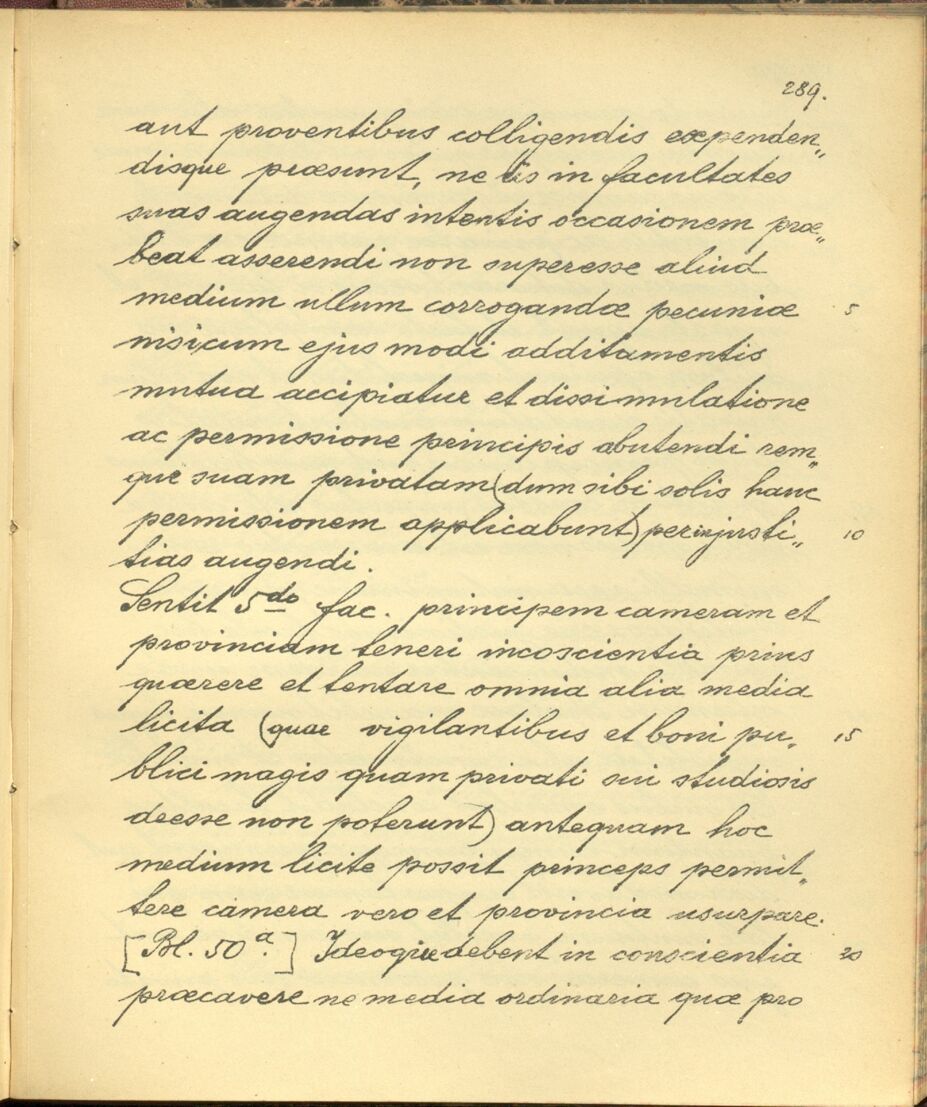 289.
aut proventibus colligendis expenden„
disque præsunt, ne iis in facultates
suas augendas intentis occasionem præ„
beat asserendi non superesse aliud
medium ullum corrogandæ pecuniæ 5
nisi cum ejus modi additamentis
mutua accipiatur et dissimulatione
ac permissione principis abutendi rem„
que suam privatam (dum sibi solis hanc
permissionem applicabunt) per injusti„ 10
tias augendi.
Sentit 5do fac. principem cameram et
provinciam teneri in coscientia prius
quærere et tentare omnia alia media
licita (quae vigilantibus et boni pu„ 15
blici magis quam privati sui studiosis
deesse non poterunt) antequam hoc
medium licite possit princeps permit„
tere camera vero et provincia usurpare.
[Bl. 50a.] Ideoque debent in conscientia 20
præcavere ne media ordinaria quæ pro